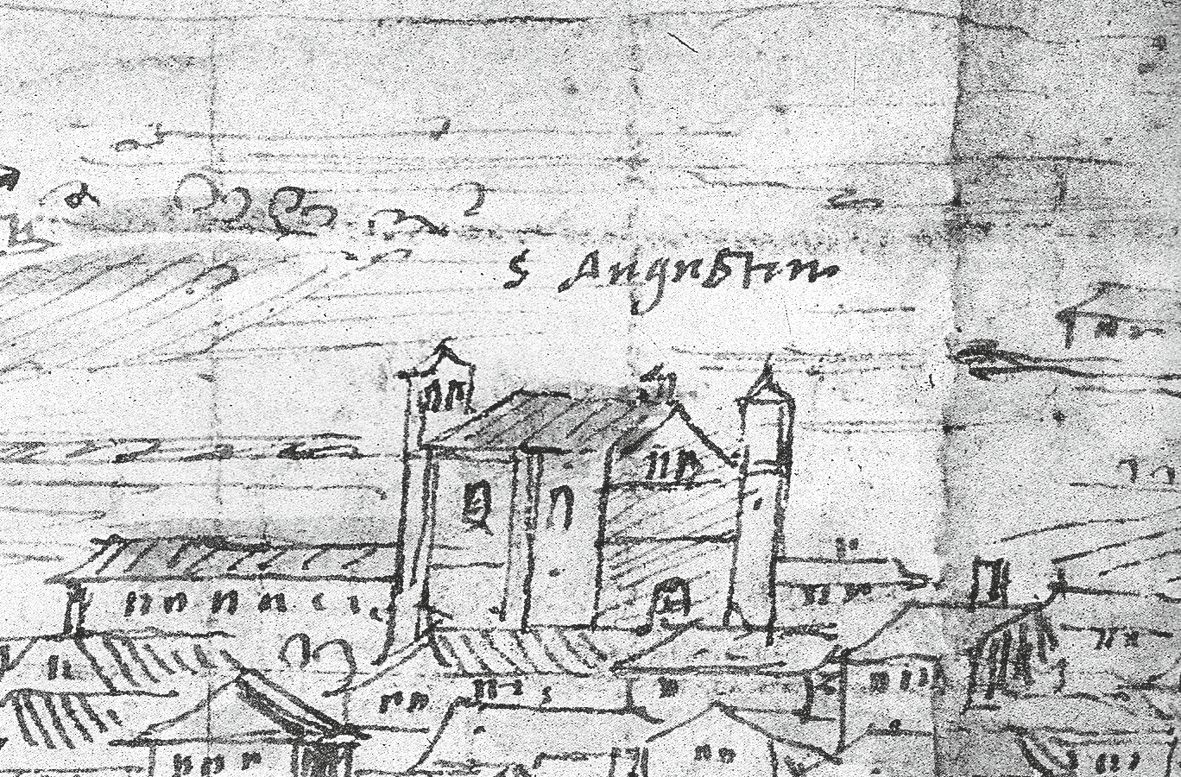 S Augustin